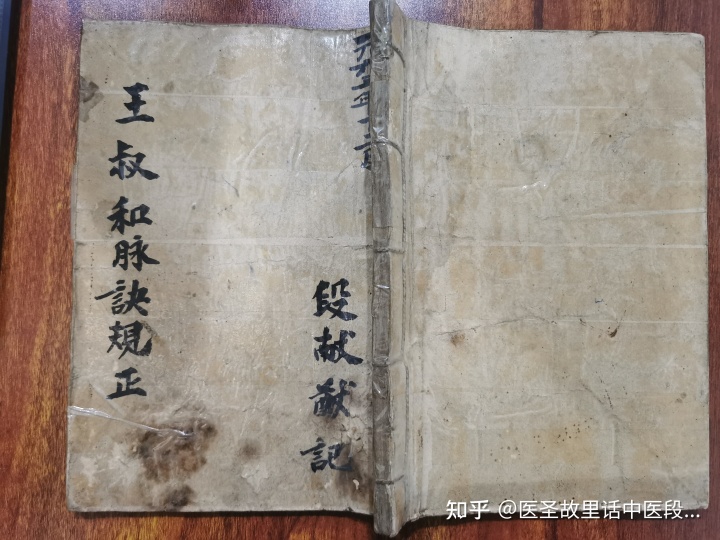 王叔和脉訣規正
段献猷記
知乎 @医圣故里话中医段...